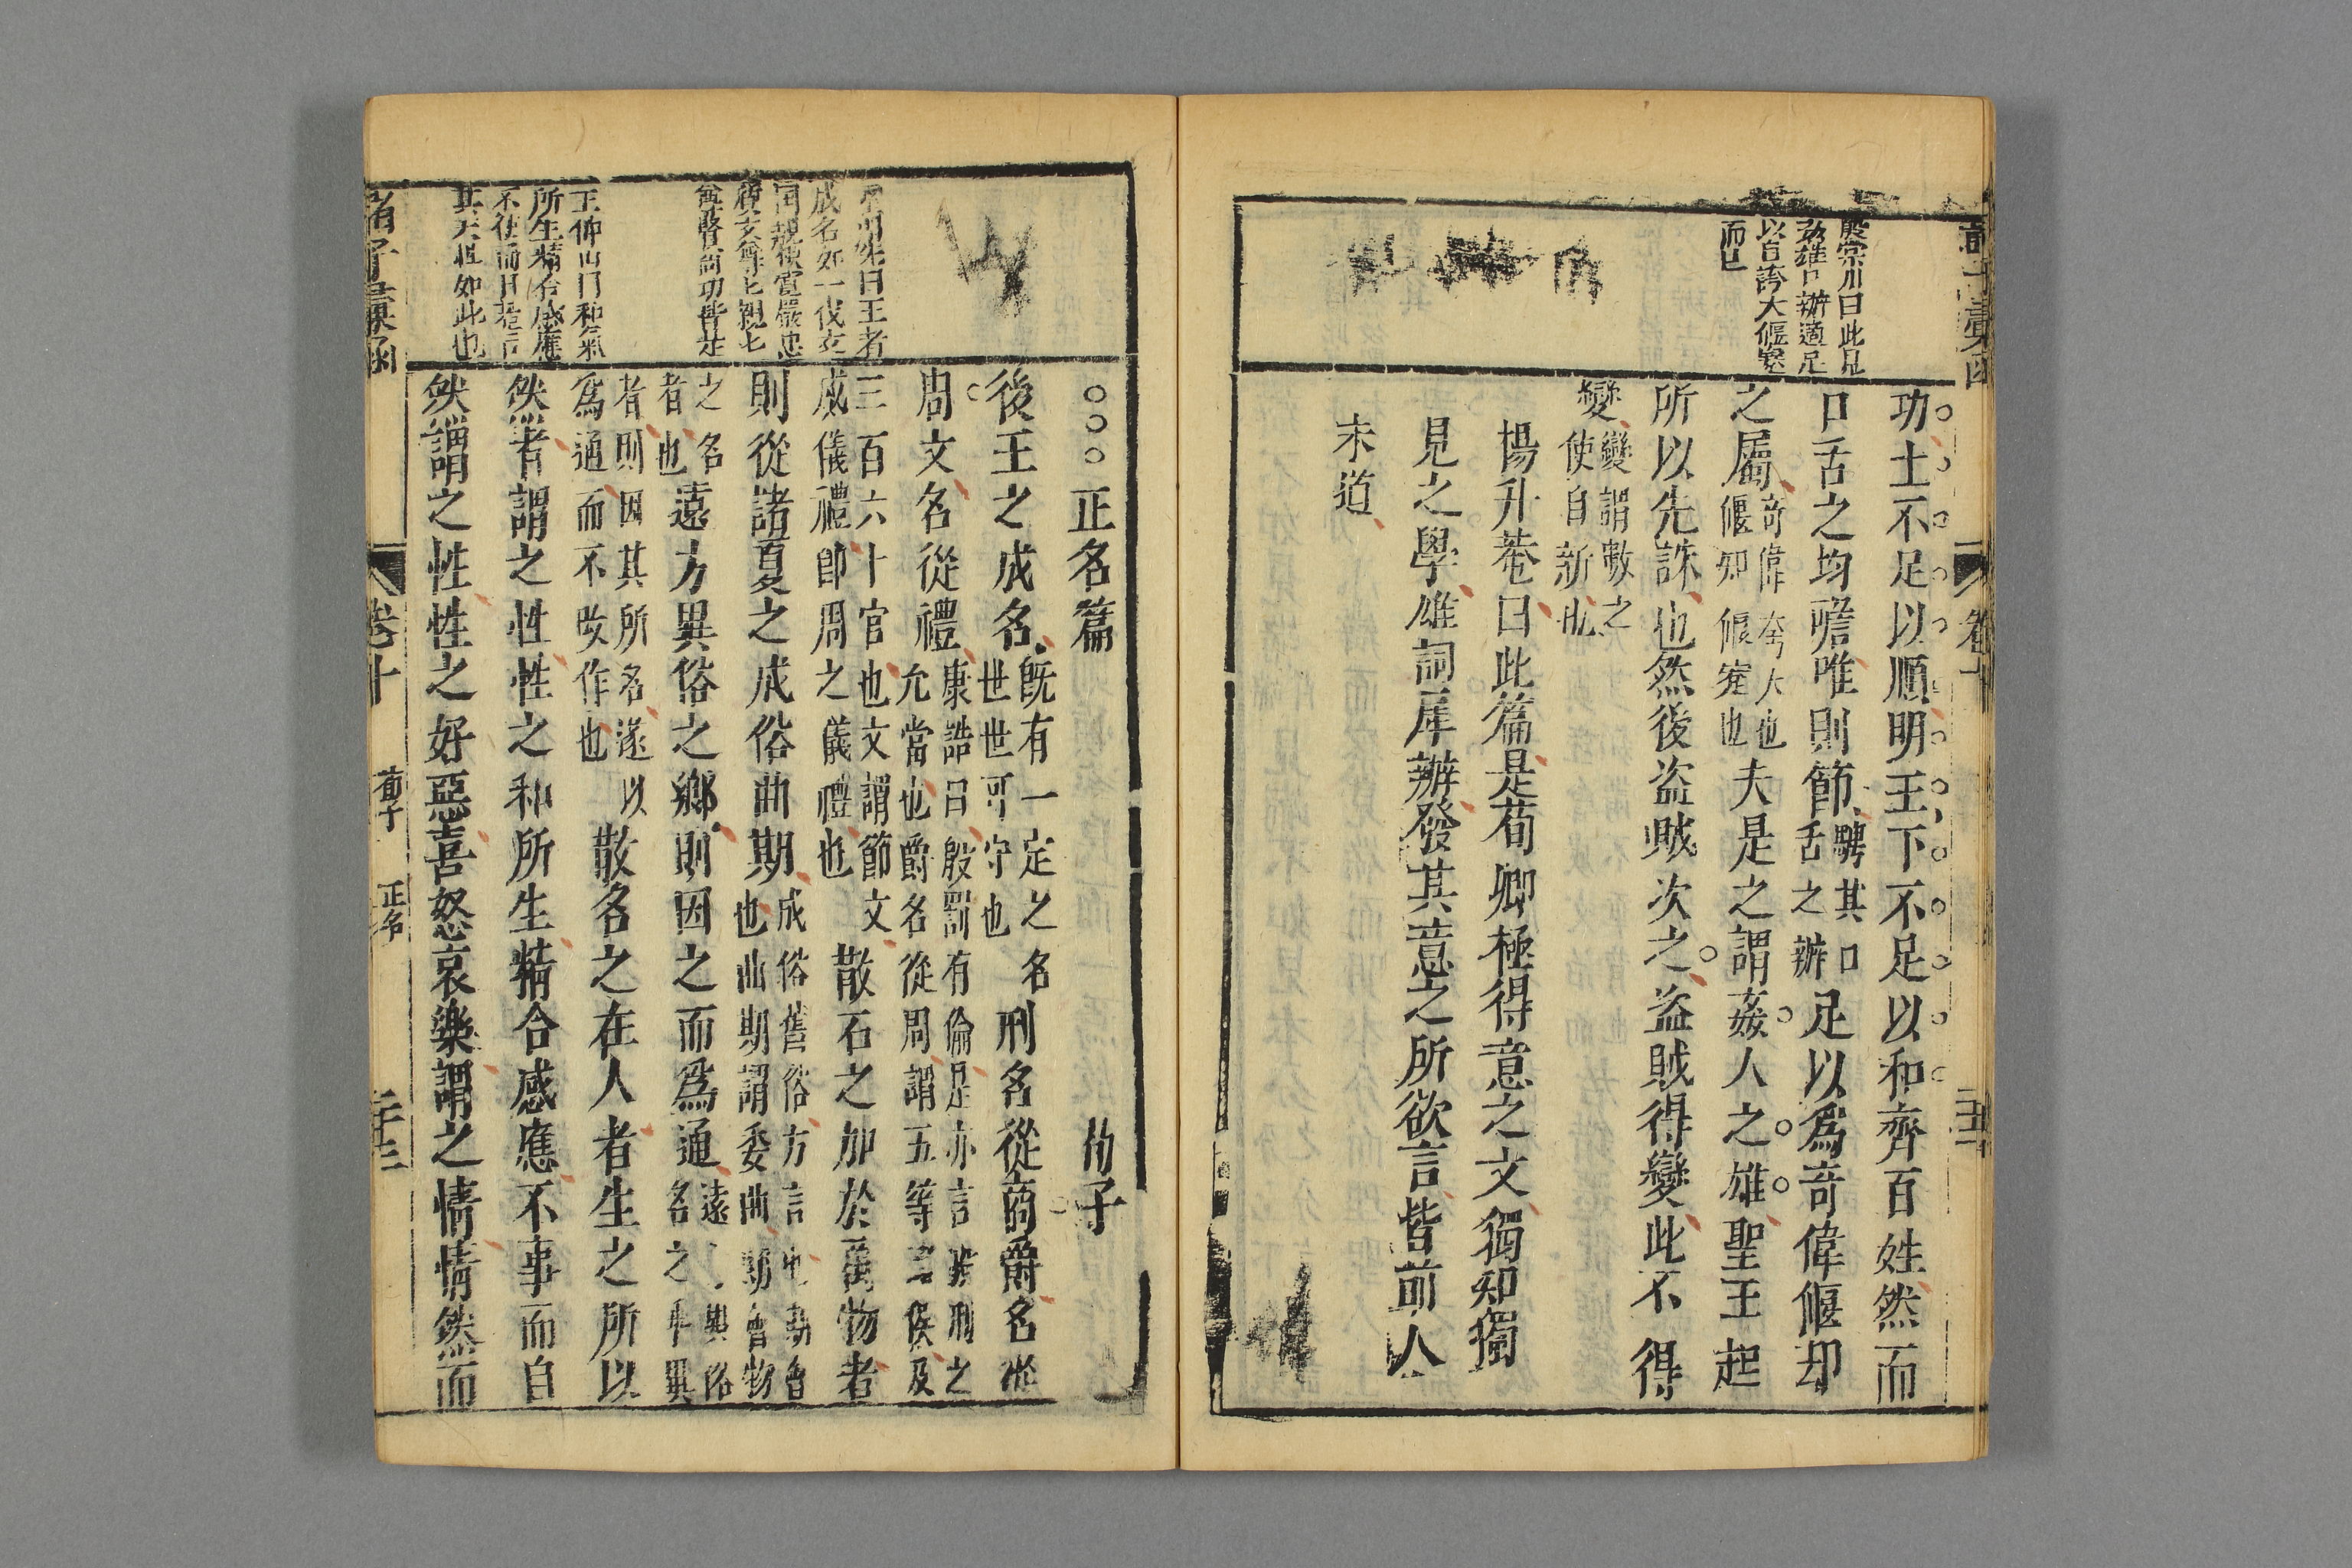 殷宗川曰此見
姦雄口辦適足
以自誇大偃蹇
而已
功士不足以順明王下不足以和齊百姓然而
口舌之均噡唯則節騁其口舌之辦足以爲奇偉偃却
之屬奇偉夸大也偃却偃蹇也夫是之謂姦人之雄聖王起
所以先誅也然後盜賊次之盜賊得變此不得
變變謂敎之使自新也
楊升菴曰此篇是荀卿極得意之文獨知獨
見之學雄詞犀辦發其意之所欲言皆前人
未道
卷十
曰王者
成名如一代玄
所生精合感應
不使而自
其天性如此也
○○○正名篇 荀子
後王之成名既有一定之名世世可守也刑名從商爵名從
周文名從禮康誥曰殷罰有倫是亦言殷刑之允當也爵名從周謂五等諸侯及
三百六十官也文謂節文威儀禮卽周之儀禮也散名之加於萬物者
則從諸夏之成俗曲期成俗舊俗方言也期會也曲期謂委曲期會物
之名者也遠方異俗之鄉則因之而爲通遠方異俗名之乖異
者則因其所名遂以爲通而不改作也散名之在人者生之所以
然者謂之性性之和所生精合感應不事而自
然謂之性性之好惡喜怒哀樂謂之情情然而
諸子彙函
卷十
荀子
正名
二十三